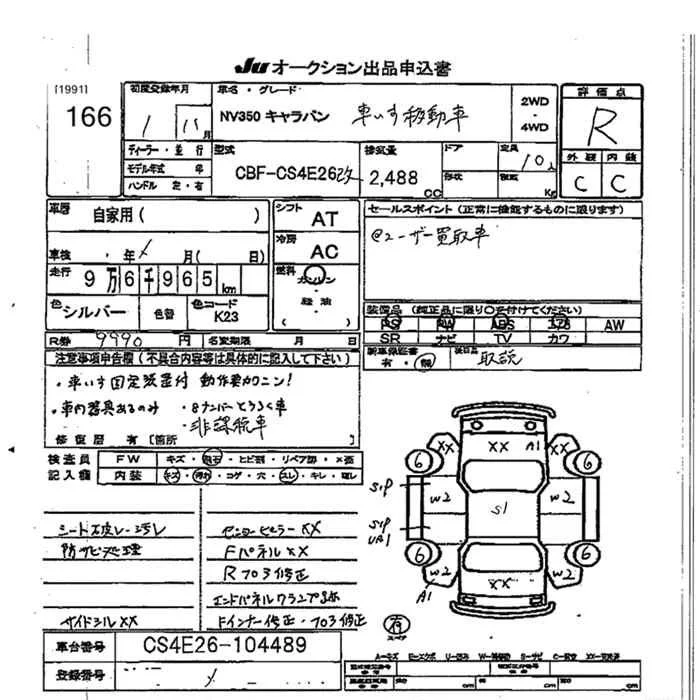 Ju オークション出品申込書
[1991]
166
初度登録年月
車名・グレード
NV350 キャラバン 車いす移動車
2WD
・
4WD
評価点
R
月
ディーラー・並行
モデル年式 年
ハンドル 左・右
型式
CBF-CS4E26改
排気量
2,488 CC
ドア
形状
定員
10人
積載 Kg
外装 内装
C C
車歴
自家用( )
シフト
AT
セールスポイント(正常に機能するものに限ります)
@ユーザー買取車
車検 ・ 年 月( 日)
冷房
AC
走行
9万6千965km
燃料
ガソリン
・
軽油
( )
色
シルバー
色替
色コード
K23
装備品(純正品に限り○を付けてください)
PS PW ABS エアB AW
SR ナビ TV カワ
R券 9990 円
名変期限 月 日
新車保証書
有・無
後日品
取説
注意事項申告欄(不具合内容等は具体的に記入して下さい)
・車いす固定装置付 動作要カクニン!
・車内器具あるのみ ・8ナンバーとうろく車
・非課税車
修復歴 有[箇所 ]
検査員
記入欄
FW キズ・飛石・ヒビ割・リペア跡・X要
内装 キズ・汚れ・コゲ・穴・スレ・キレ・壊レ
XX XX A1 XX
6 6
S1P W2 S1 W2
S1P
UA1
6 6
W2 XX W2
A1
シート皮レ・汚レ
防サビ処理
サイドシルXX
センターピラーXX
FパネルXX
Rフロア修正
エンドパネルクランプ跡
ドインナー修正・フロア修正
有
スペア
A-キズ E-エクボ U-凹み W-補修跡 S-サビ C-腐食 XX-交換済
車台番号
CS4E26-104489
登録番号
cm cm cm